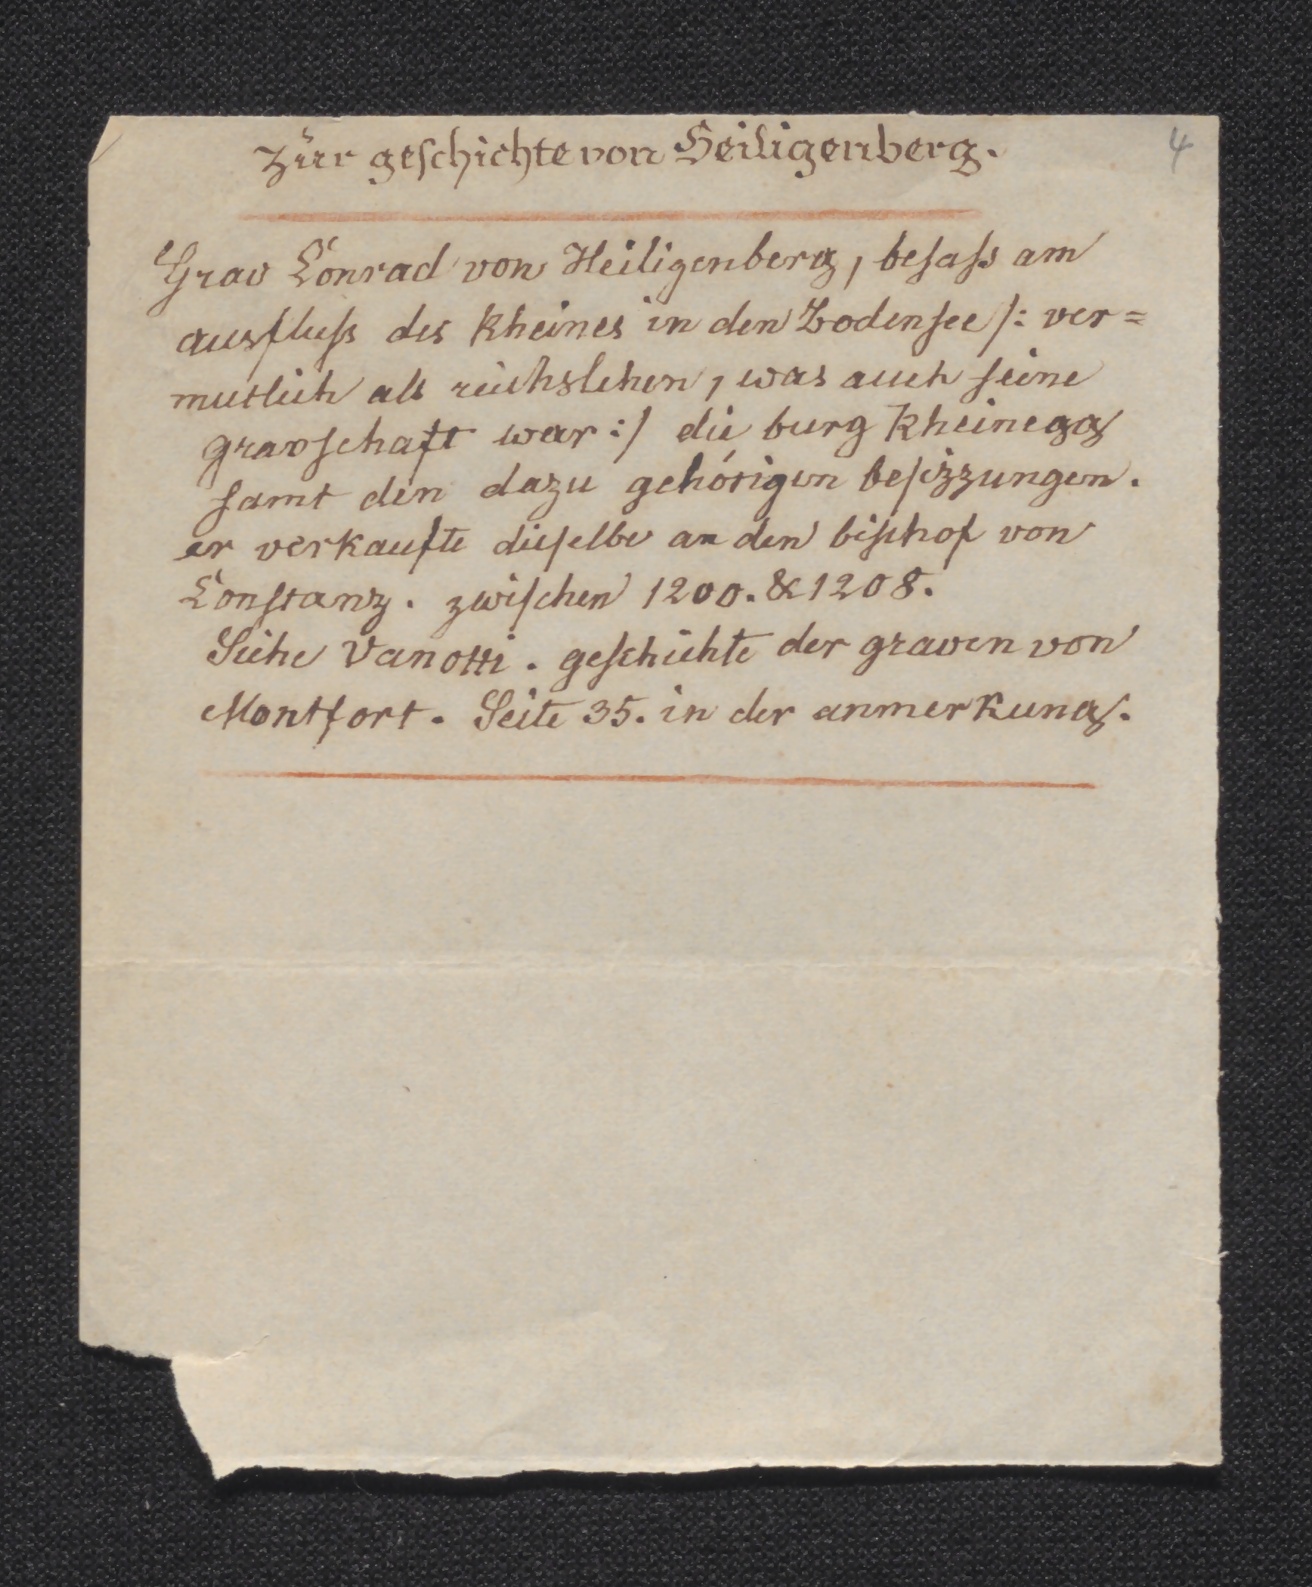 Zur geschichte von Heiligenberg.
4
Grav Conrad von Heiligenberg, besass am
ausfluss des Rheines in den Bodensee /: ver=
mutlich als reichslehen, was auch seine
gravschaft war :/ die burg Rheinegg
samt den dazu gehörigen besizzungen.
er verkaufte dieselbe an den bischof von
Constanz. zwischen 1200. & 1208.
Siehe Vanotti. geschichte der graven von
Montfort. Seite 35. in der anmerkung.